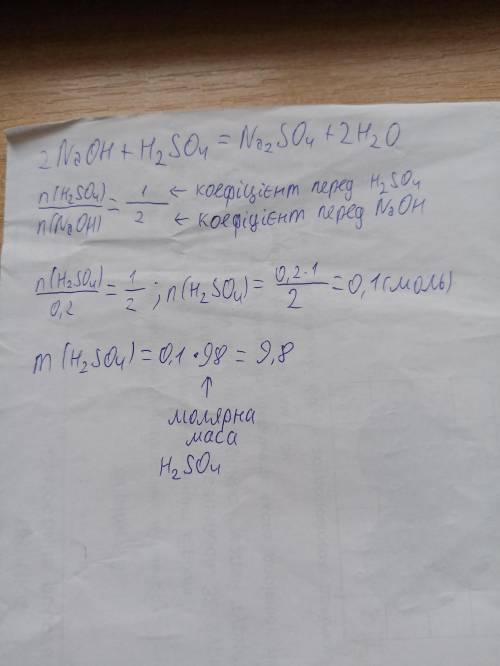 2NaOH + H₂SO₄ = Na₂SO₄ + 2H₂O
n(H₂SO₄)/n(NaOH) = 1/2 ← коефіцієнт перед H₂SO₄
← коефіцієнт перед NaOH
n(H₂SO₄)/0,2 = 1/2 ; n(H₂SO₄) = 0,2·1/2 = 0,1 (моль)
m (H₂SO₄) = 0,1 · 98 = 9,8
↑
молярна
маса
H₂SO₄